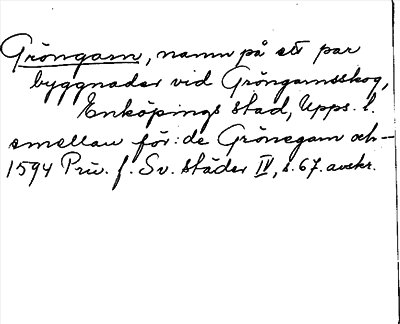 Gröngarn, namn på ett par
byggnader vid Gröngarnsskog,
Enköpings stad, Upps. l.
emellan för: de Grönegarn och –
1594 Priv. f. Sv. städer IV, s. 67. avskr.